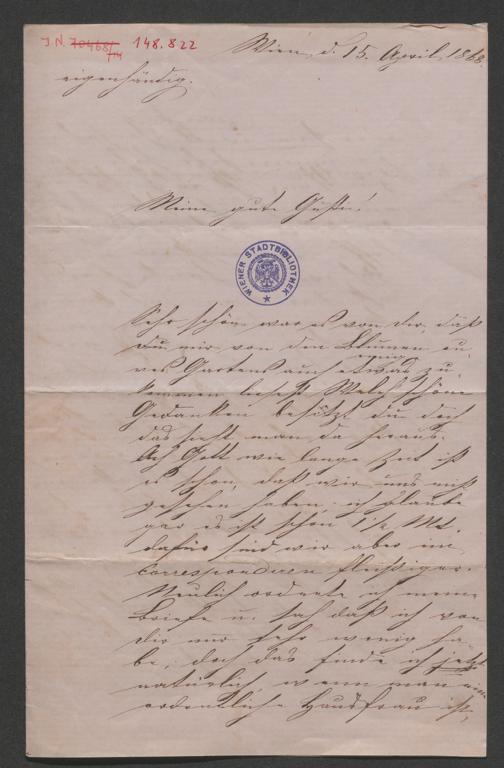 J.N. 70468/14 148.822
Wien, d. 15. April 1868.
eigenhändig.
Meine gute Gusti!
WIENER STADTBIBLIOTHEK
Sehr schön war es von dir, daß
du mir von den Blumen eu-
res Gartens auch etwas zu-
kommen ließest Welch schöne
Gedanken besitzt du doch
das sieht man da heraus.
Ach Gott wie lange Zeit ist
es schon, daß wir uns nicht
gesehen haben, ich glaube
gar es ist schon 1½ Mt.
dafür sind wir aber im
correspondiren fleißiger.
Neulich ordnete ich meine
Briefe u. sah daß ich von
dir nur sehr wenig ha-
be, doch das finde ich jetzt
natürlich, wenn man eine
ordentliche Hausfrau ist,